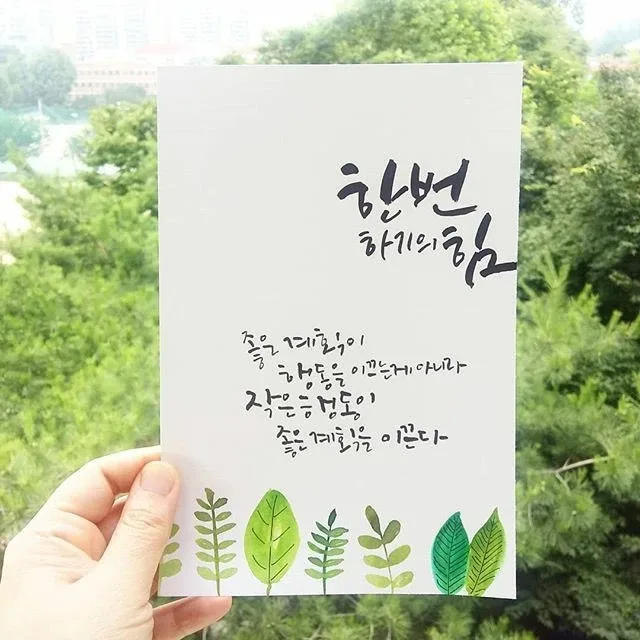 한번
하기의 힘
좋은 계획이
행동을 이끄는게 아니라
작은 행동이
좋은 계획을 이끈다